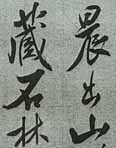 晨出山
藏石林